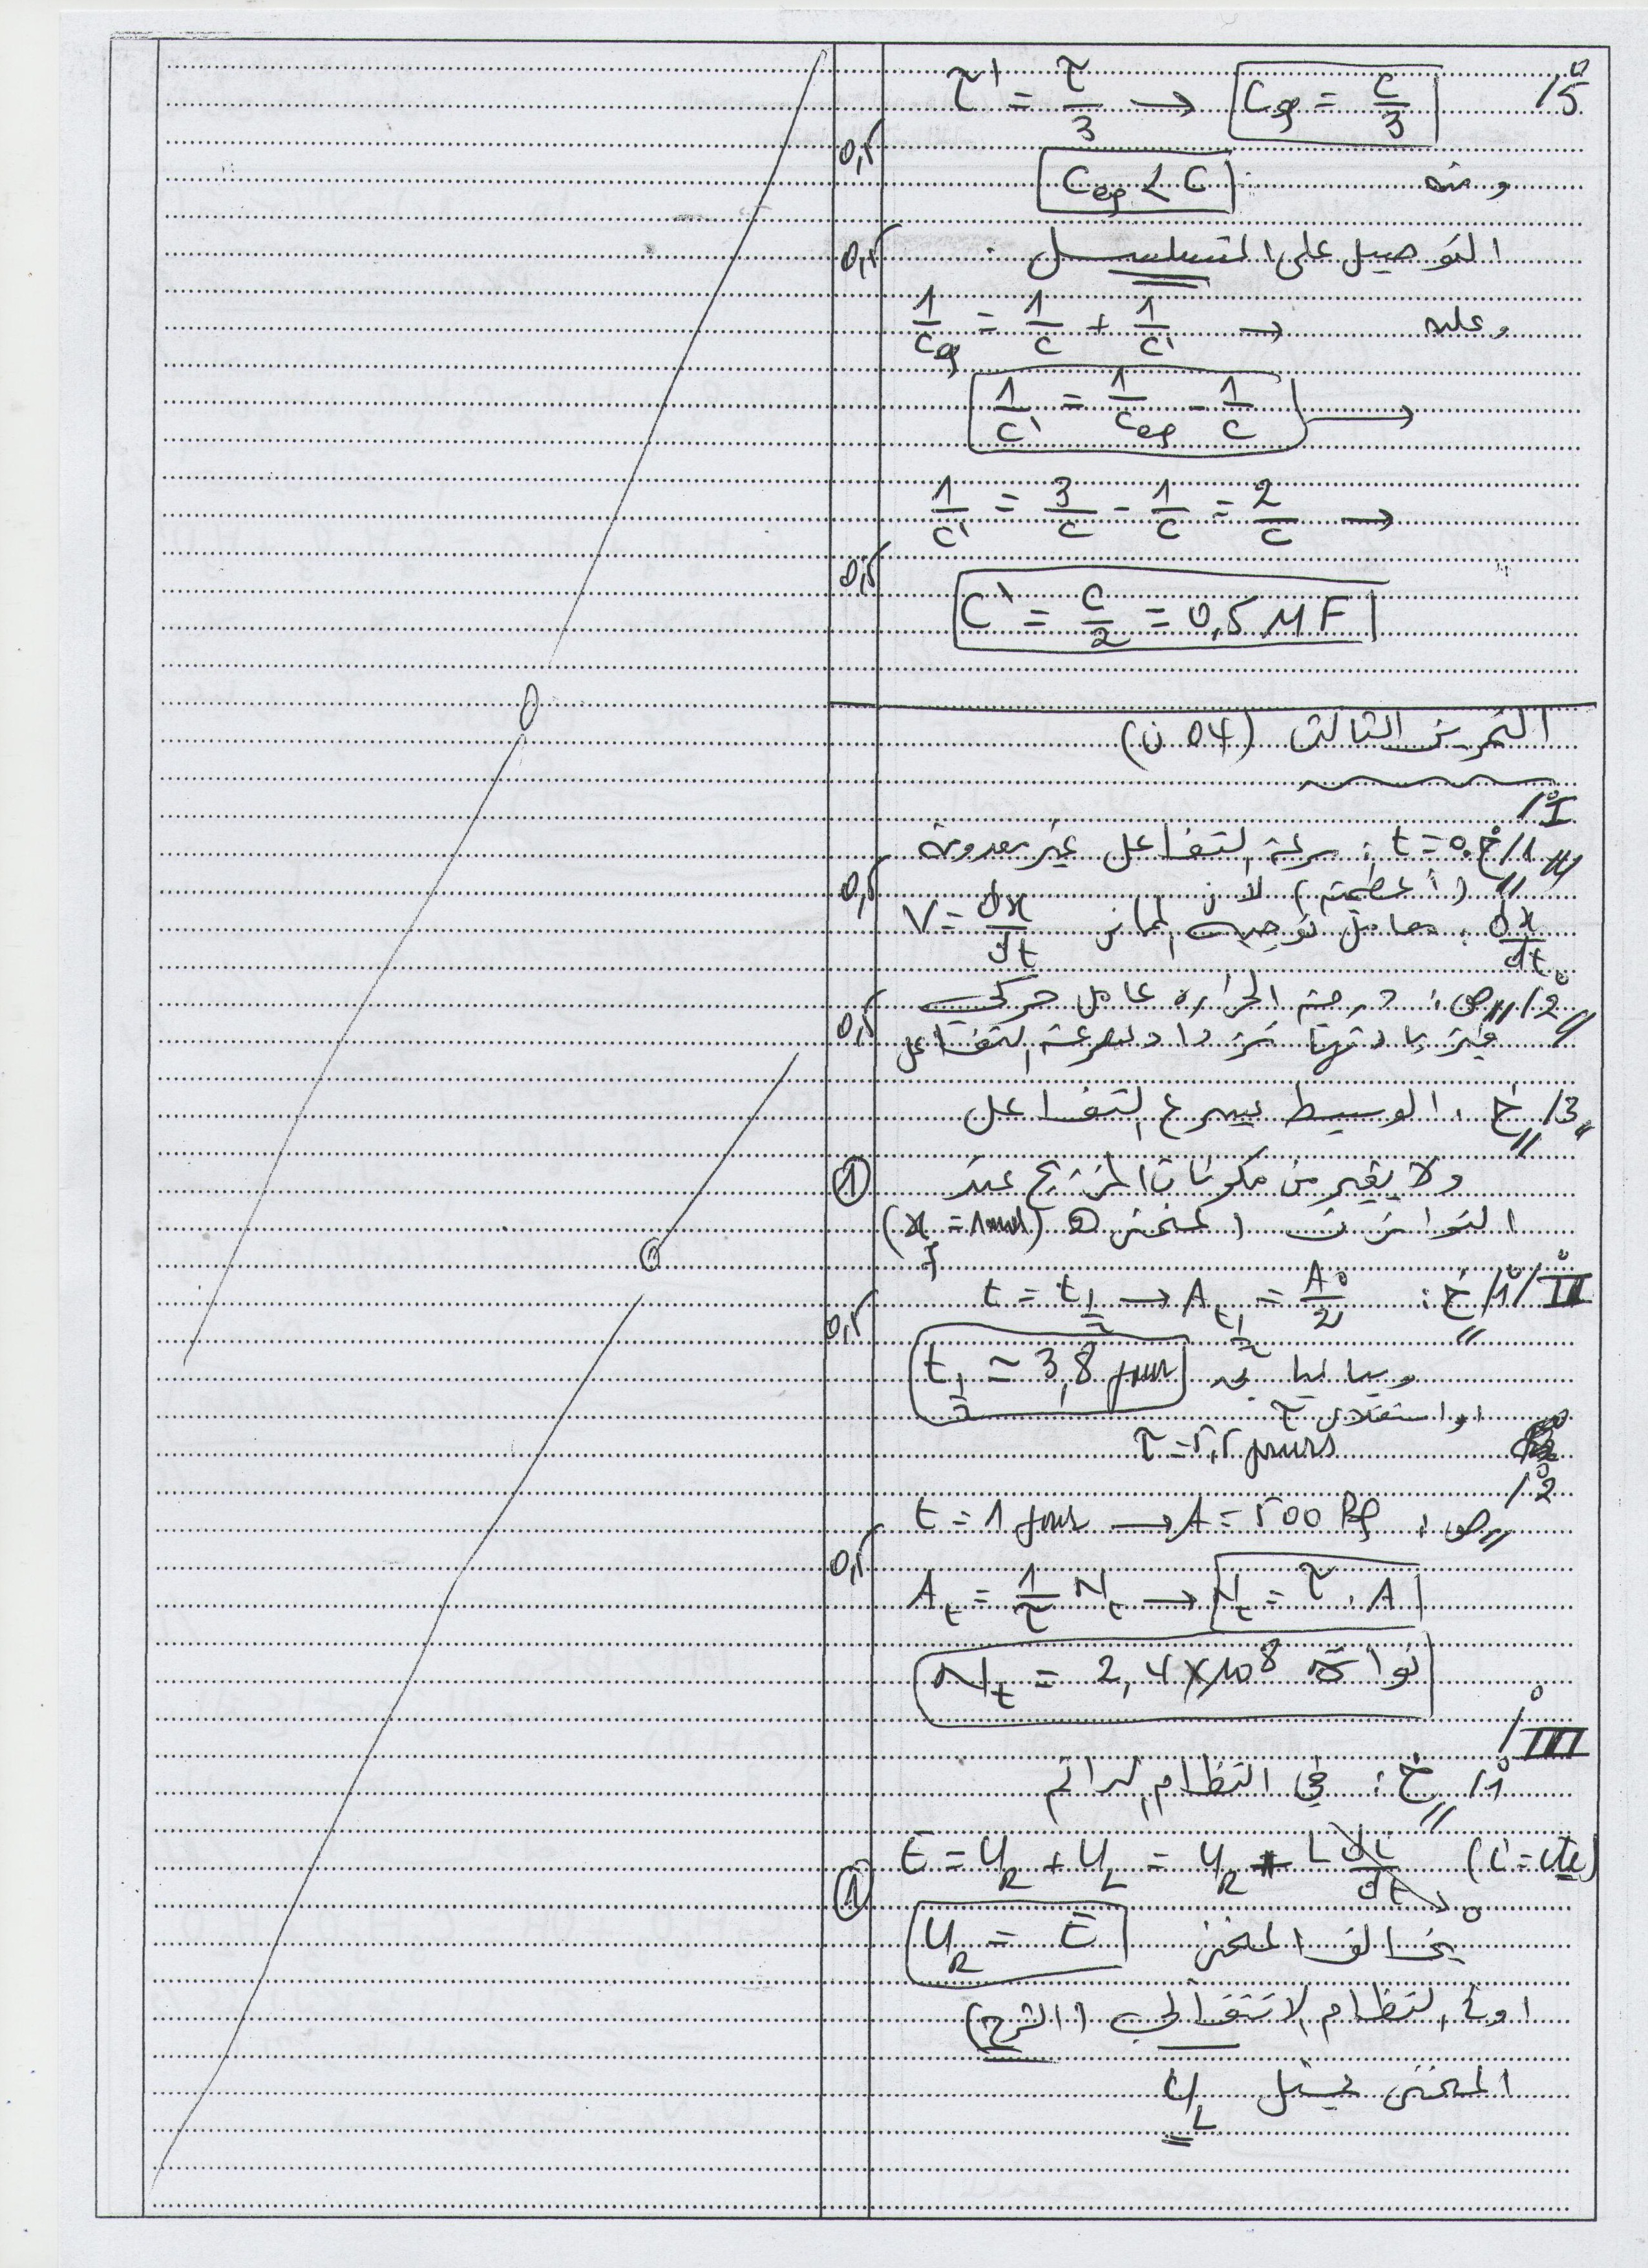 5/ τ' = τ/3 → Ceq = C/3
0,5
ومنه : Ceq < C
0,5 التوصيل على التسلسل .
وعليه → 1/Ceq = 1/C + 1/C'
→ 1/C' = 1/Ceq - 1/C
→ 1/C' = 3/C - 1/C = 2/C
0,5
C' = C/2 = 0,5 μF
التمرين الثالث (04 ن)
I/
1/ خ : t = 0 سرعة التفاعل غير معدومة
0,5 (أعظمية) لأن
dx/dt : معامل توجيه المماس V = dx/dt
0,5 2/ ص : درجة الحرارة عامل حركي
فبزيادتها تزداد سرعة التفاعل
3/ خ : الوسيط يسرع التفاعل
1 ولا يغير من مكونات المزيج عند
التوازن المنحنى (xf = 1 mol)
II/ 1/ خ : t = t1/2 → At1/2 = A0/2
0,5
وبيانيا نجد t1/2 = 3,8 jour
او استغلال τ
τ = 5,5 jours
2/
ص : t = 1 jour → A = 500 Bq
0,5
At = 1/τ Nt → Nt = τ . A
Nt = 2,4 × 10^8 نواة
III/
1/ خ : في النظام الدائم
E = UR + UL = UR + L di/dt → 0 (i = cte)
1
يخالف المنحنى UR = E
او في النظام الانتقالي (الشرح)
المنحنى يمثل UL